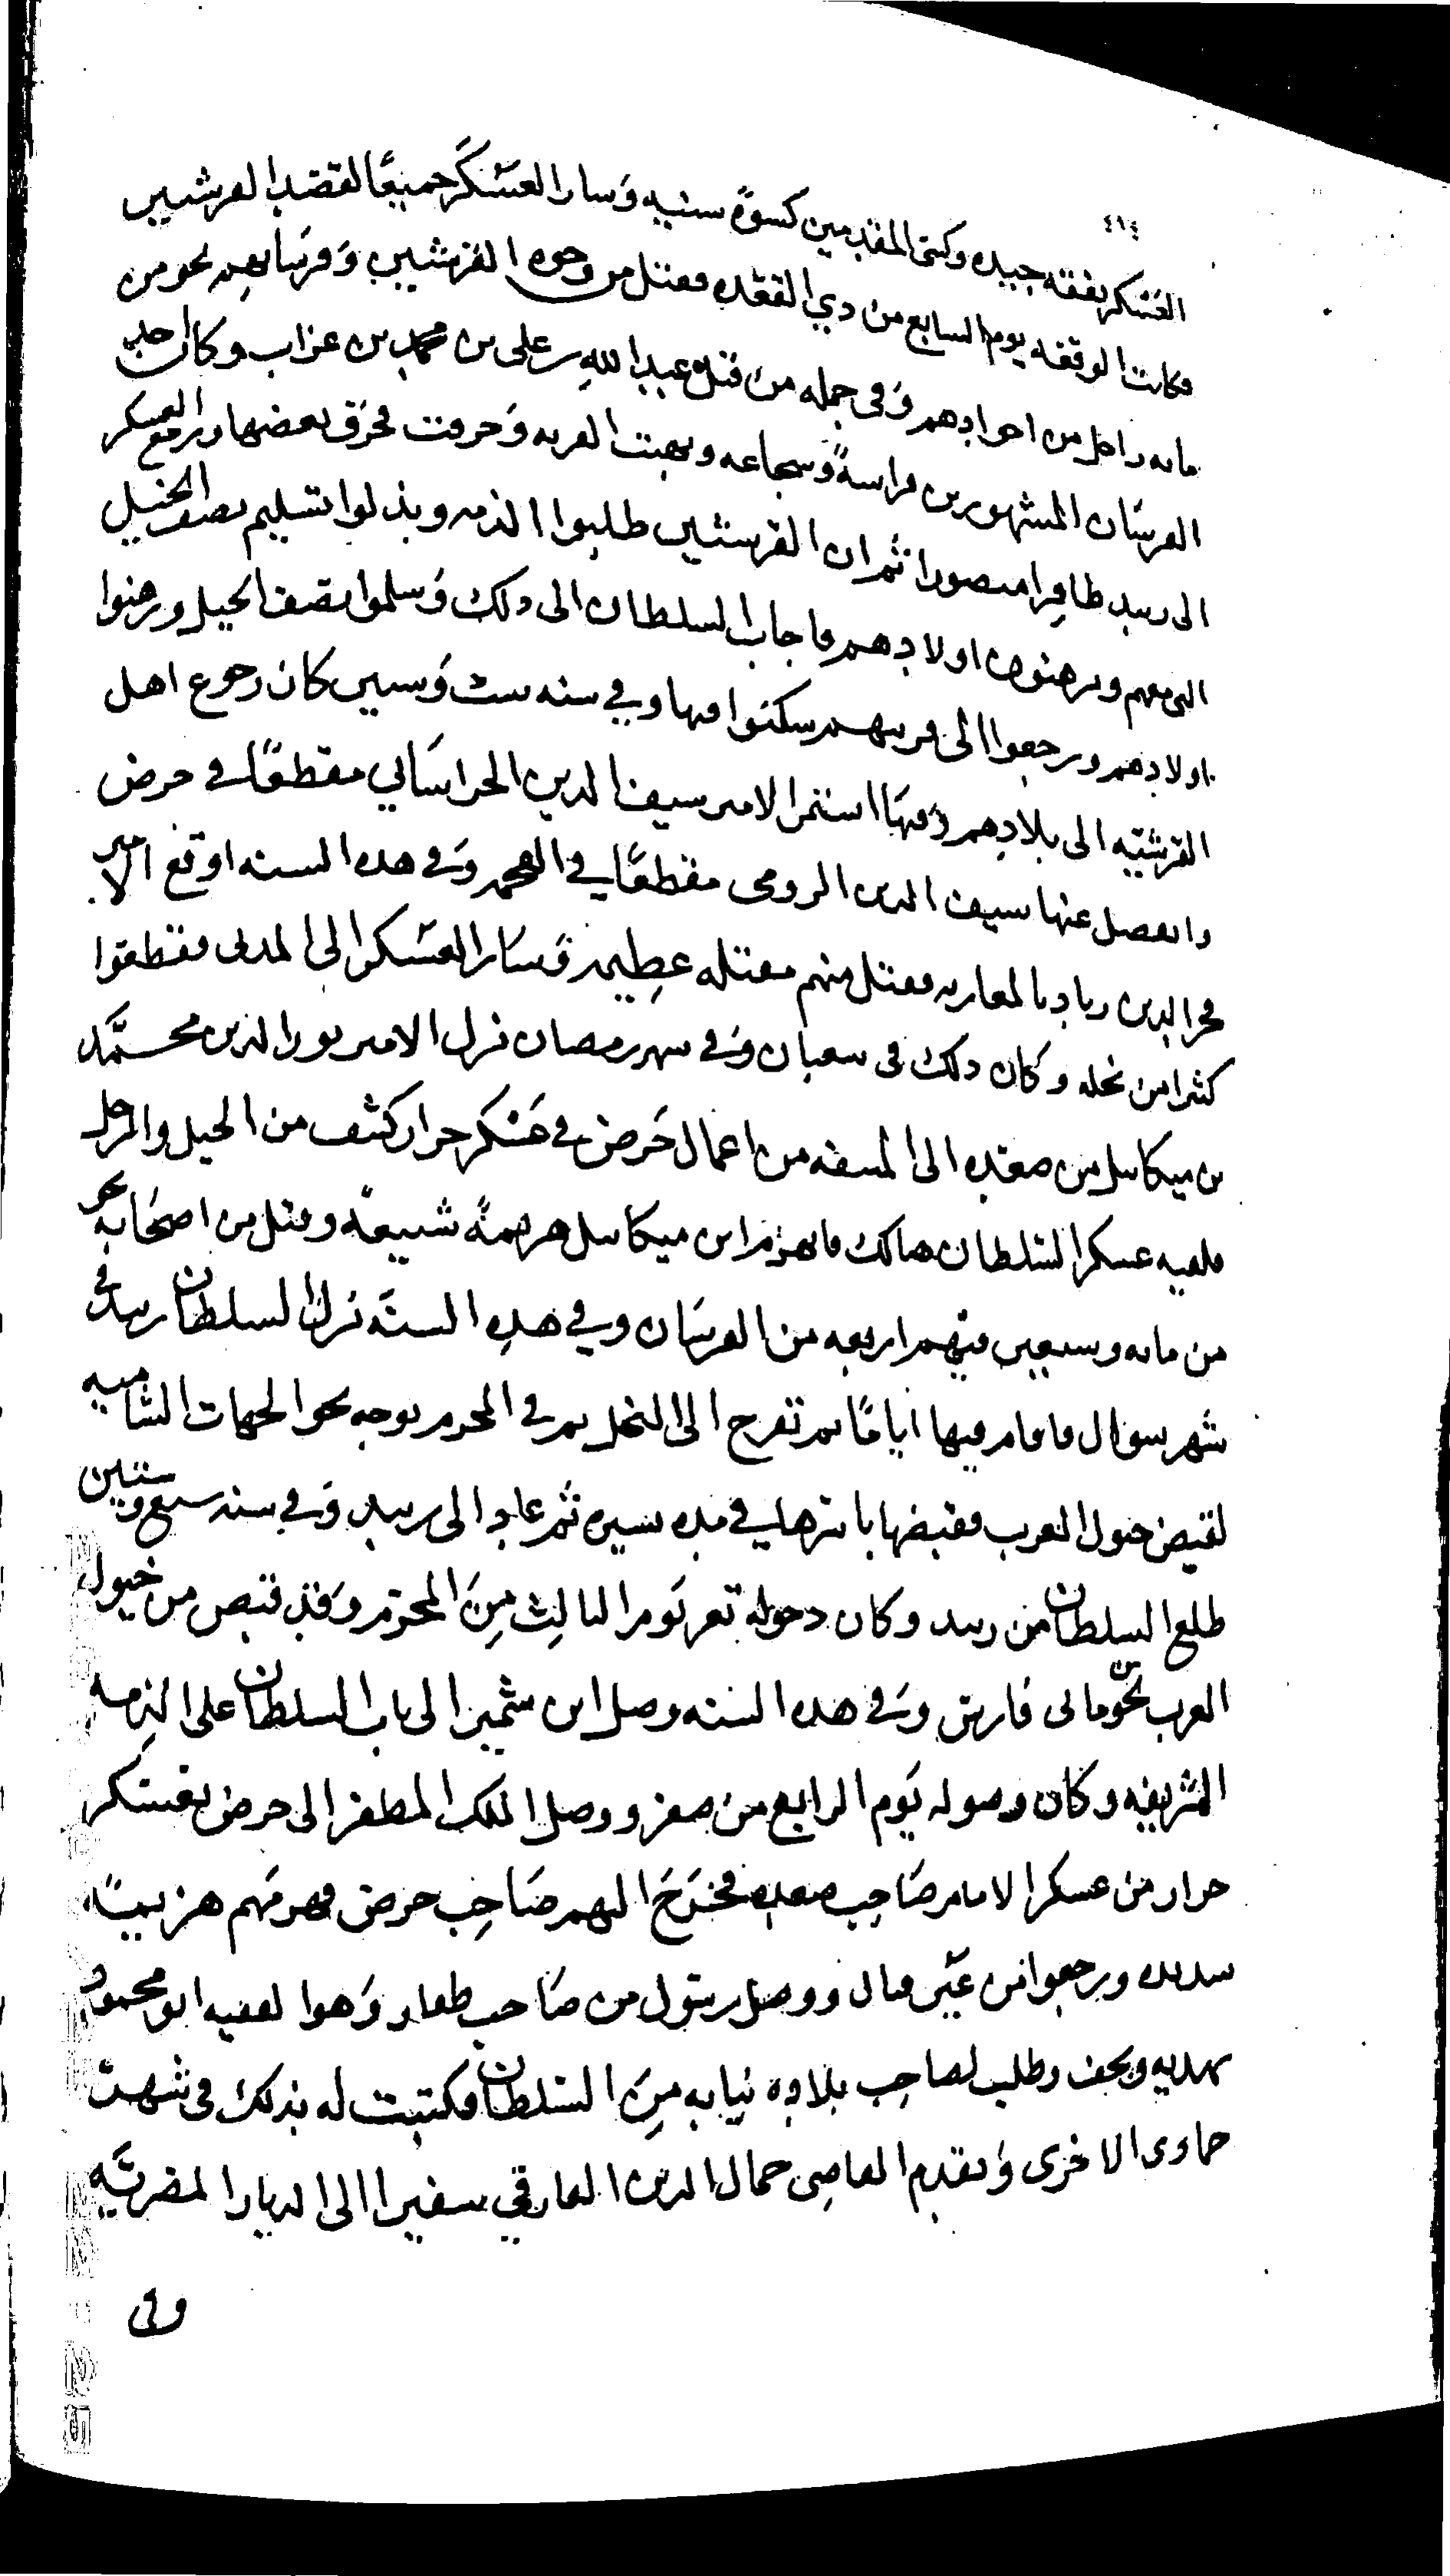 ٤١٤
العسكر نفقه جيده وكسى المقدمين كسوة سنيه وسار العسكر جميعًا لقصد القرشيين
فكانت الوقعه يوم السابع من ذي القعده فقتل من وجوه القرشيين وفرسانهم نحو من
مايه راجل من اجوادهم وفي جمله من قتل عبد الله بن علي بن محمد بن عزاب وكان احد
الفرسان المشهورين فراسةً وشجاعه ونهبت القريه وحرقت فحرق بعضها ورجع العسكر
الى زبيد ظافرا منصورا ثم ان القرشيين طلبوا الذمه وبذلوا تسليم نصف الخيل
التي معهم ويرهنون اولادهم فاجاب السلطان الى ذلك وسلموا نصف الخيل ورهنوا
اولادهم ورجعوا الى قريتهم سكنوا فيها وفي سنه ست وستين كان رجوع اهل
القرشيه الى بلادهم وفيها استمر الامير سيف الدين الخراساني مقطعًا في حرض
وانفصل عنها سيف الدين الرومي مقطعًا في المهجم وفي هذه السنه اوقع الامير
فخر الدين زياد بالمعازبه فقتل منهم مقتله عظيمه وسار العسكر الى المدلى فقطعوا
كثيرا من نخله وكان ذلك في شعبان وفي شهر رمضان نزل الامير نور الدين محمد
بن ميكاىيل من صعده الى المسفه من اعمال حرض في عسكر جرار كثيف من الخيل والرجل
فلقيه عسكر السلطان هنالك فانهزم ابن ميكاىيل هزيمةً شنيعةً وقتل من اصحابه نحو
من مايه وسبعين فيهم اربعه من الفرسان وفي هذه السنه نزل السلطان زبيد في
شهر شوال فاقام فيها ايامًا ثم تفرج الى النخل ثم في المحرم توجه نحو الجهات الشاميه
لقبض خيول العرب فقبضها باسرها في مده يسيره ثم عاد الى زبيد وفي سنه سبع وستين
طلع السلطان من زبيد وكان دخوله تعز يوم الثالث من المحرم وقد قبض من خيول
العرب نحوًا من مايتي فارس وفي هذه السنه وصل ابن سمير الى باب السلطان على الذمه
الشريفه وكان وصوله يوم الرابع من صفر ووصل الملك المظفر الى حرض بعسكر
جرار من عسكر الامام صاحب صعده فخرج اليهم صاحب حرض فهزمهم هزيمة
شديده ورجعوا من غير قتال ووصل رسول من صاحب ظفار وهو الفقيه ابو محمود
بهديه وتحف وطلب لصاحب بلاده نيابه من السلطان فكتبت له بذلك في شهر
جمادى الاخرى وتقدم القاضي جمال الدين الفارقي سفيرا الى الديار المصريه
وفي